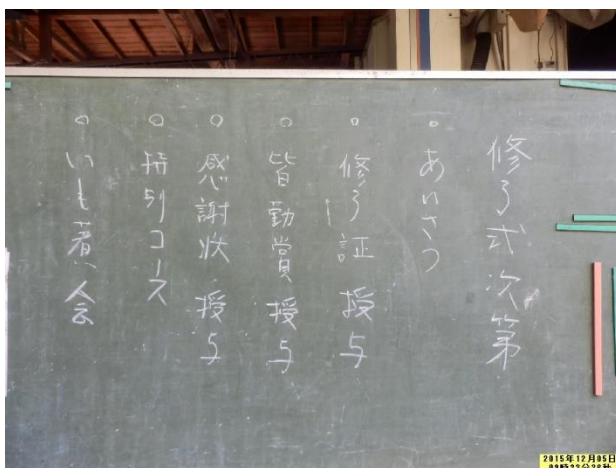 修了式次第
。あいさつ
。修了証授与
。皆勤賞授与
。感謝状授与
。特別コース
。いも煮会
2015年12月05日